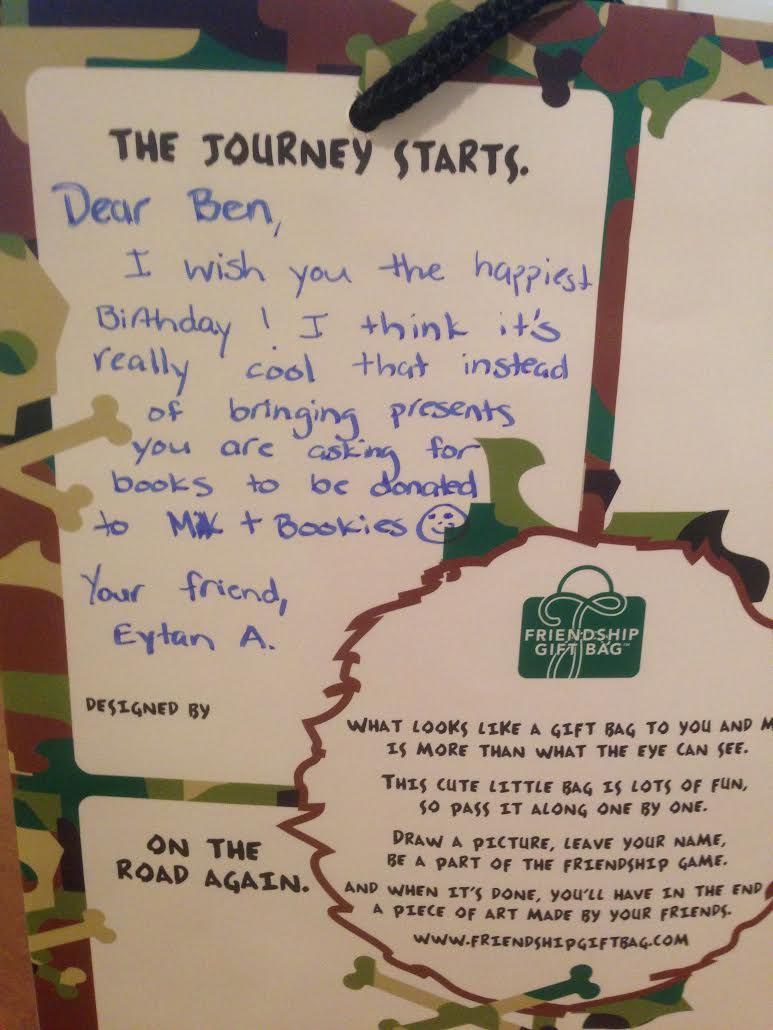 THE JOURNEY STARTS.
Dear Ben,
I wish you the happiest
Birthday! I think it's
really cool that instead
of bringing presents
you are asking for
books to be donated
to Milk + Bookies
Your friend,
Eytan A.
DESIGNED BY
FRIENDSHIP
GIFT BAG™
WHAT LOOKS LIKE A GIFT BAG TO YOU AND M
IS MORE THAN WHAT THE EYE CAN SEE.
THIS CUTE LITTLE BAG IS LOTS OF FUN,
SO PASS IT ALONG ONE BY ONE.
DRAW A PICTURE, LEAVE YOUR NAME,
BE A PART OF THE FRIENDSHIP GAME.
AND WHEN IT'S DONE, YOU'LL HAVE IN THE END
A PIECE OF ART MADE BY YOUR FRIENDS.
WWW.FRIENDSHIPGIFTBAG.COM
ON THE
ROAD AGAIN.